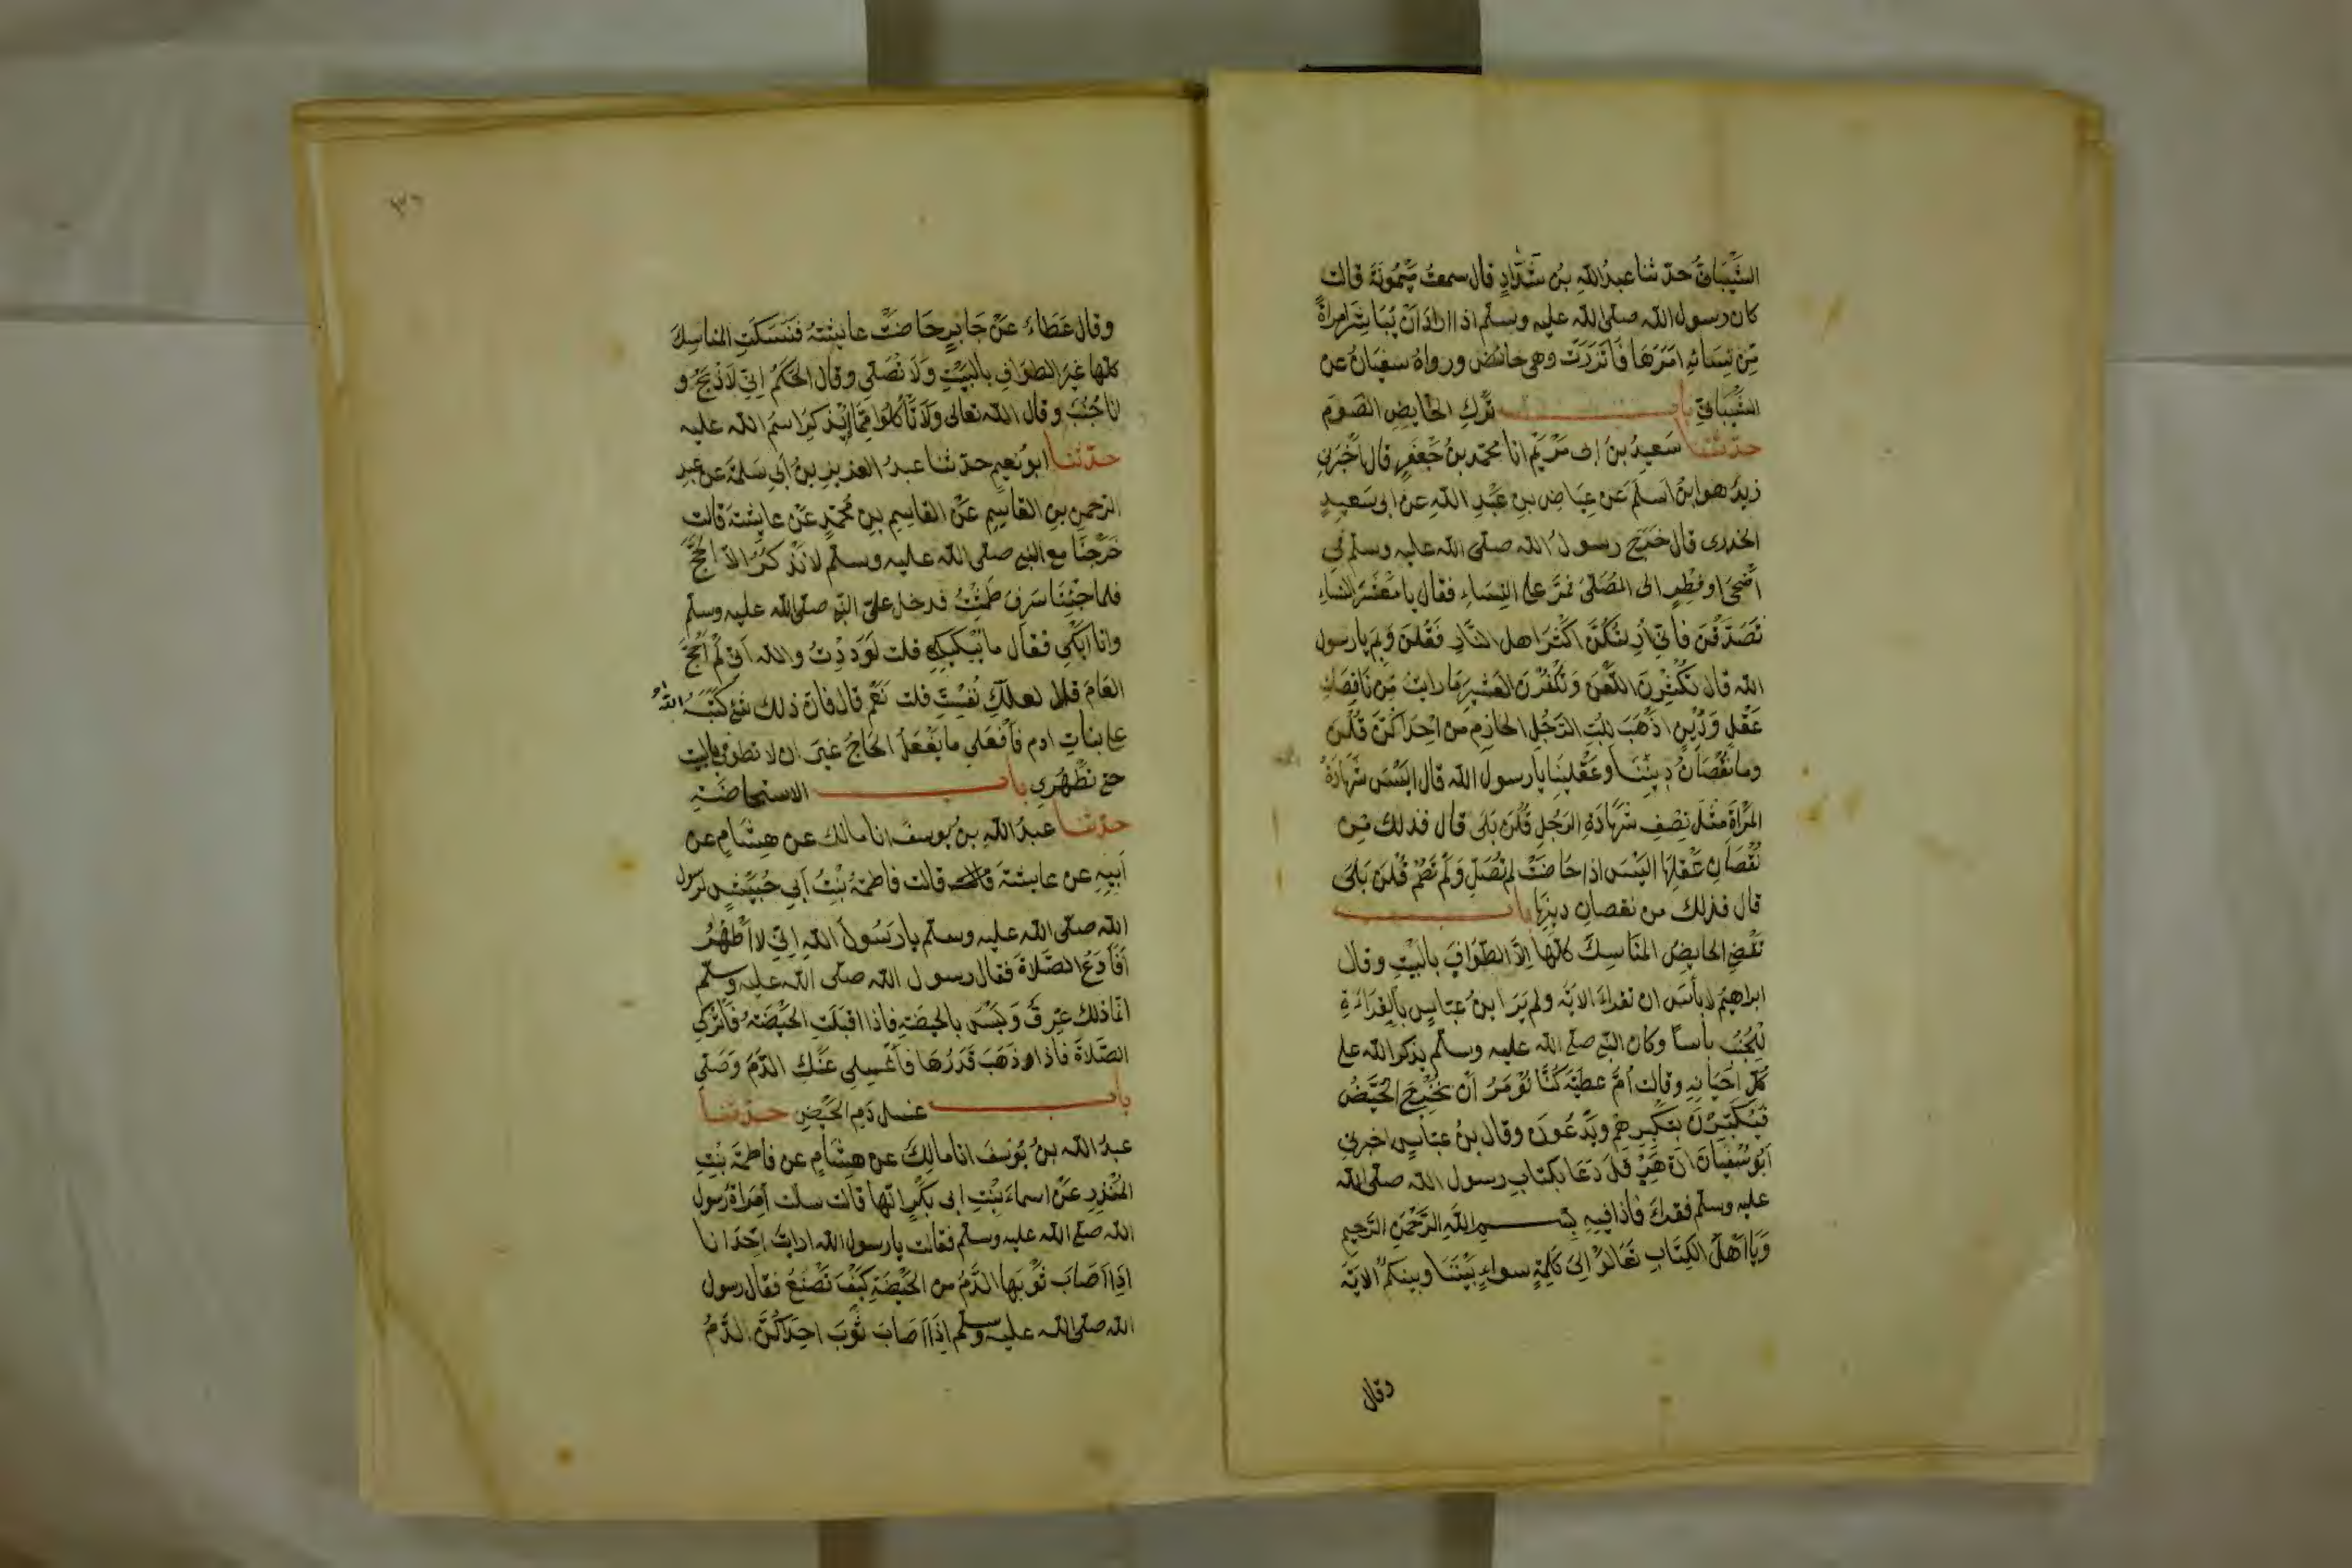 الشَّيْبَانِيُّ حدثنا عبدُ الله بنُ شَدَّادٍ قال سمعتُ مَيْمُونَةَ قالت
كان رسول الله صلى الله عليه وسلم اذا اراد أن يُبَاشِرَ امرأةً
مِن نِسائِهِ امَرَهَا فَاتَّزَرَتْ وهي حائض ورواهُ سفيَانُ عن
الشَّيْبَانِيِّ باب تَرْكِ الحَايِضِ الصَّوم
حدثنا سَعيدُ بنُ ابى مَرْيَمَ انا محمّد بنُ جَعْفَرٍ قال أَخْبَرَنى
زيدٌ هو ابنُ اَسلَمَ عَن عِيَاضِ بنِ عَبْدِ اللهِ عن ابى سَعيدٍ
الخدرى قال خَرَجَ رسولُ الله صلى الله عليه وسلم في
أَضْحَى او فِطْرٍ الى المُصَلَّى فمَرَّ على النِّسَاءِ فقال يا مَعْشَرَ النساءِ
تَصَدَّقْنَ فَاِنّى اُرِيتُكُنَّ اكْثَرَ اهل النَّارِ فَقُلنَ وَبِمَ يارسول
الله قال تُكْثِرنَ اللَّعْنَ وَتَكْفُرْنَ العَشِيرَ مَا رايتُ مِن نَاقِصَاتِ
عَقْلٍ وَدِينٍ اَذْهَبَ لِلُبِّ الرَّجُلِ الحَازِمِ من اِحْدَاكُنَّ قُلْنَ
وما نُقْصَانُ دِينِنَا وعَقْلِنَا يا رسول الله قال اَلَيْسَ شَهَادَةُ
المَرْاَةِ مِثْلَ نِصْفِ شَهَادَةِ الرَجُلِ قُلْنَ بَلَى قال فذلك مِن
نُقْصَانِ عَقْلِهَا اَلَيْسَ اذا حَاضَتْ لم تُصَلِّ وَلَمْ تَصُمْ قُلْنَ بَلَى
قال فذلك من نقصانِ دِينِهَا باب
تَقْضِي الحايِضُ المَنَاسِكَ كلَّهَا اِلَّا الطَّوَافَ بالبَيْتِ وقال
ابراهيمُ لا بأْسَ ان تقراءَ الايَةَ ولم يَرَ ابنُ عبّاسٍ بالقِرَاءَةِ
لِلْجُنُبِ بأساً وكان النبي صلى الله عليه وسلم يذكر الله على
كُلِّ اَحْيَانِهِ وقالت اُمُّ عطيّة كُنَّا نُؤمَرُ أَنْ نُخْرِجَ الحُيَّضَ
فَيُكَبِّرْنَ بتَكْبِيرِهِم ويَدْعُونَ وقال بنُ عبّاسٍ اخبرنى
أَبُو سُفْيَانَ انَّ هِرَقْلَ دَعَا بكتابِ رسول الله صلى الله
عليه وسلم فقراَءَ فاذا فيهِ بِسْمِ اللهِ الرَّحْمٰنِ الرَّحِيمِ
وَيَا اَهْلَ الكِتَابِ تَعَالَوْا اِلىَ كَلِمَةٍ سواءٍ بَيْنَنَا وبينكمُ الايَةَ
وقال
٣٦
وقال عَطَاءٌ عَنْ جَابِرٍ حَاضَتْ عايشةُ فَنَسَكَتِ المناسِكَ
كلّها غيرَ الطوَافِ بالبَيْتِ وَلَا تُصَلِّي وقال الحَكَمُ اِنّي لَاَذْبَحُ و
انا جُنُبٌ وقال الله تعالى وَلَا تَأْكُلُوا مِمَّا لَمْ يُذْكَرِ اسمُ الله عليه
حدّثنا ابو نُعيمٍ حدثنا عبدُ العزيزِ بنُ أبي سَلمَةَ عن عبدِ
الرَّحمنِ بنِ القاسِمِ عَنْ القاسِمِ بنِ مُحَمّدٍ عَنْ عايشةَ قالت
خَرَجْنَا مع النبي صلى الله عليه وسلم لا نَذْكُرُ الاّ الحَجَّ
فلما جِئْنَا سَرِفَ طَمِثْتُ فدخل علىّ النبى صلى الله عليه وسلم
وانا اَبْكي فقال ما يُبْكيكِ قلت لَوَدِدْتُ والله اَنّى لَمْ اَحُجَّ
العَامَ قال لعلّكِ نُفِسْتِ قلت نَعَم قال فانّ ذلك شيءٌ كَتَبَهُ اللهُ
على بناتِ ادم فَافْعَلِي ما يَفْعَلُ الحَاجُّ غيرَ ان لا تطوفى بالبيت
حتى تَطْهُرِي باب الاستحاضَةِ
حدّثنا عبدُ اللهِ بنُ يُوسفَ انا مالك عن هِشَامٍ عن
أَبِيهِ عن عايشةَ قالت قالت فاطمَةُ بنْتُ أبي حُبَيْشٍ لرسول
الله صلى الله عليه وسلم يارَسُولَ اللهِ اِنّي لا اَطْهُرُ
اَفَاَدَعُ الصَّلاةَ فقال رسول الله صلى الله عليه وسلم
انّما ذلك عِرْقٌ وَلَيْسَ بالحيضَةِ فاذا اقبَلَتِ الحَيْضَةُ فَاتْرُكِي
الصَّلاةَ فاذا ذَهَبَ قَدْرُهَا فَاغْسِلِي عَنْكِ الدَّمَ وَصَلِّي
باب غسل دَمِ الحَيْضِ حدّثنا
عبدُ الله بنُ يُوسُفَ انا مالِكٌ عن هِشَامٍ عن فاطمَةَ بنْتِ
المُنْذِرِ عَنْ اسماءَ بِنْتِ ابى بَكْرٍ انّها قالت سالت اِمَراةٌ رسول
الله صلى الله عليه وسلم فقالت يارسول الله ارايتَ اِحْدَانا
اذَا اَصَابَ ثَوْبَها الدَّمُ من الحَيْضَةِ كَيْفَ تَصْنَعُ فقال رسول
الله صلى الله عليه وسلم اِذَا اَصَابَ ثَوْبَ احِدَاكُنَّ الدَّمُ